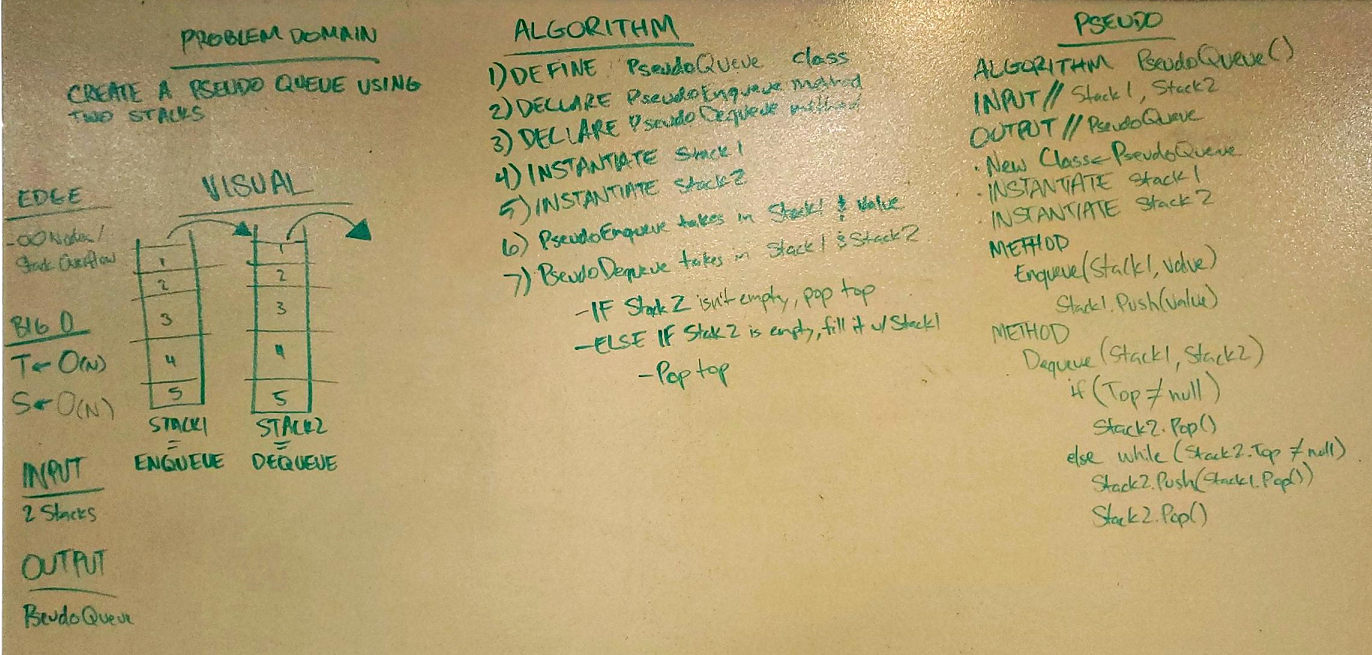 PROBLEM DOMAIN
CREATE A PSEUDO QUEUE USING
TWO STACKS
EDGE
Stack Overflow
BIG O
T← O(N)
S← O(N)
INPUT
2 Stacks
OUTPUT
PseudoQueue
VISUAL
1
2
3
4
5
STACK1
=
ENQUEUE
1
2
3
4
5
STACK2
=
DEQUEUE
ALGORITHM
1) DEFINE PseudoQueue class
2) DECLARE PseudoEnqueue method
3) DECLARE PseudoDequeue method
4) INSTANTIATE Stack1
5) INSTANTIATE Stack2
6) PseudoEnqueue takes in Stack1 & value
7) PseudoDequeue takes in Stack1 & Stack2
-IF Stack2 isn't empty, pop top
-ELSE IF Stack2 is empty, fill it w/ Stack1
-Pop top
PSEUDO
ALGORITHM PseudoQueue()
INPUT // Stack1, Stack2
OUTPUT // PseudoQueue
· New Class= PseudoQueue
· INSTANTIATE Stack1
· INSTANTIATE Stack2
METHOD
Enqueue(Stack1, value)
Stack1.Push(value)
METHOD
Dequeue(Stack1, Stack2)
if (Top ≠ null)
Stack2.Pop()
else while (Stack2.Top ≠ null)
Stack2.Push(Stack1.Pop())
Stack2.Pop()